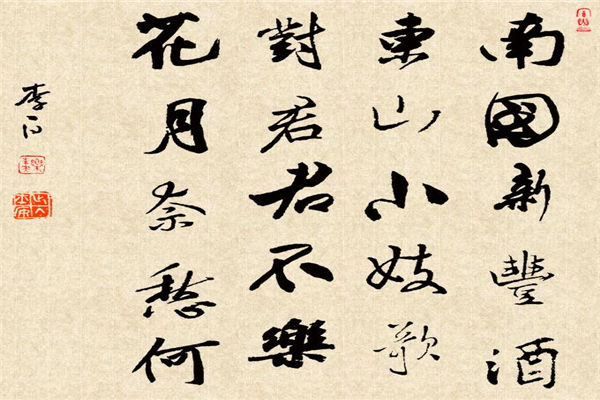 南國新豐酒
東山小妓歌
對君君不樂
花月奈愁何